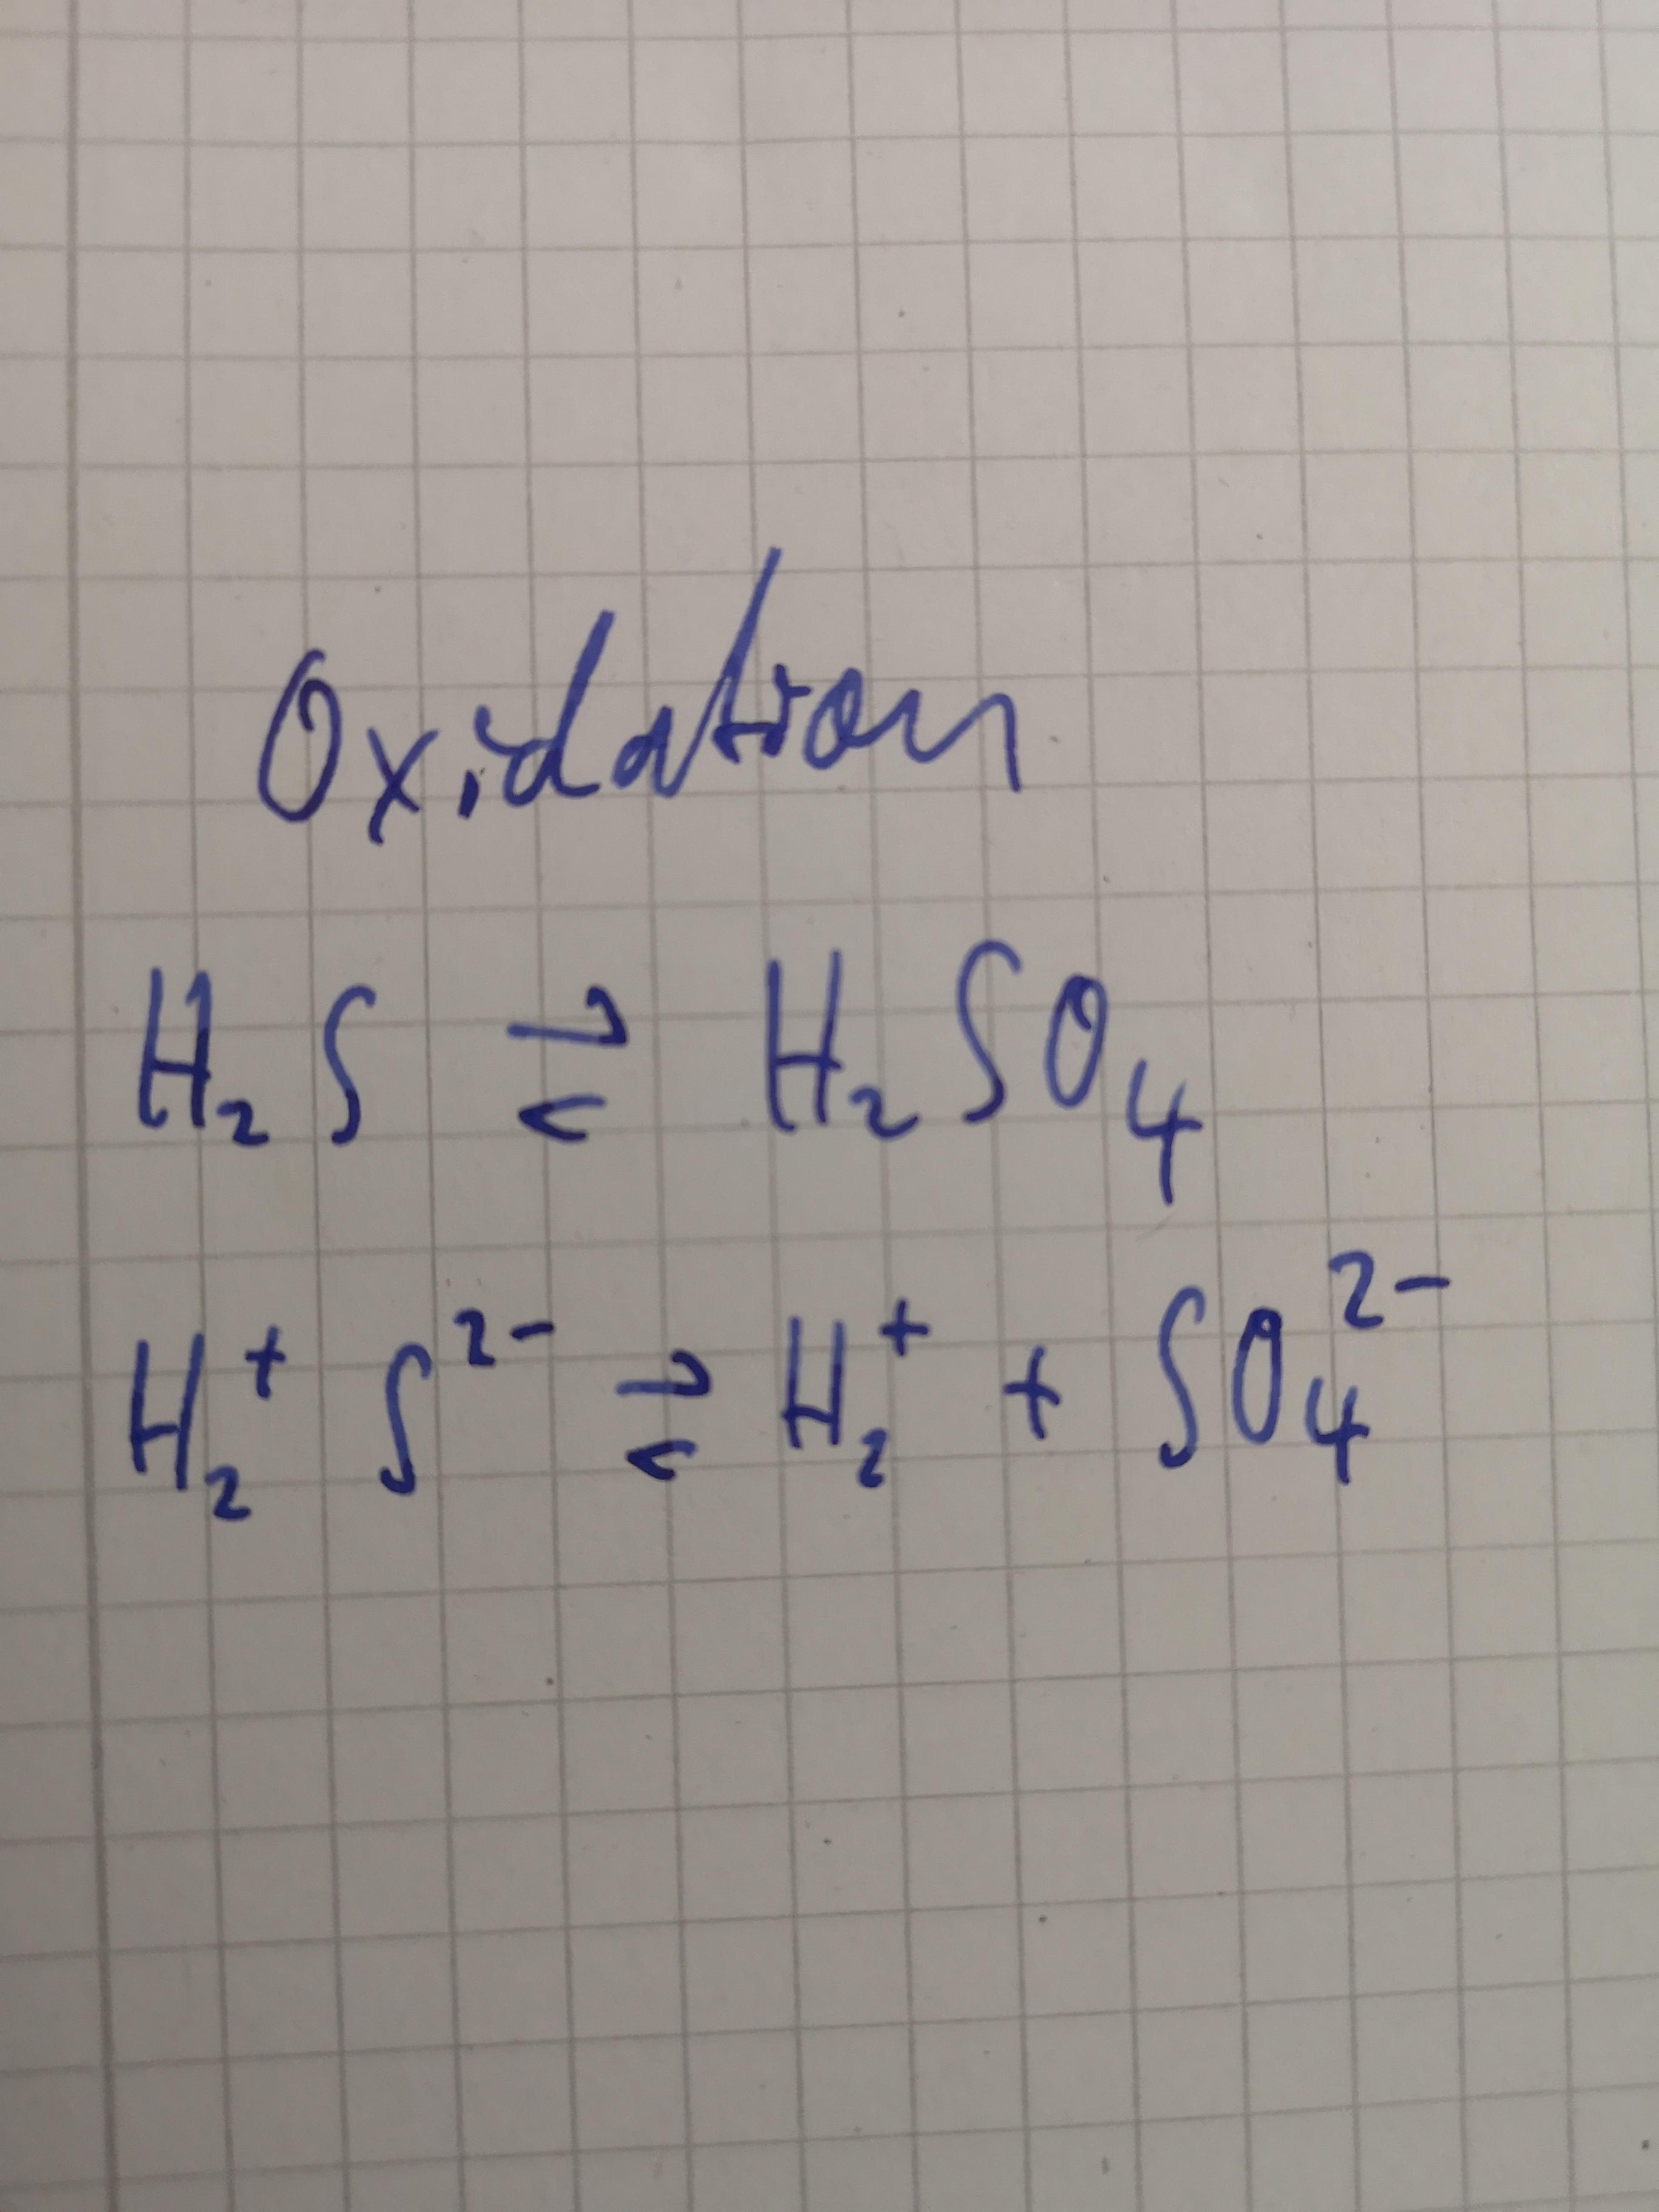 Oxidation
H₂S ⇌ H₂SO₄
H₂⁺ S²⁻ ⇌ H₂⁺ + SO₄²⁻